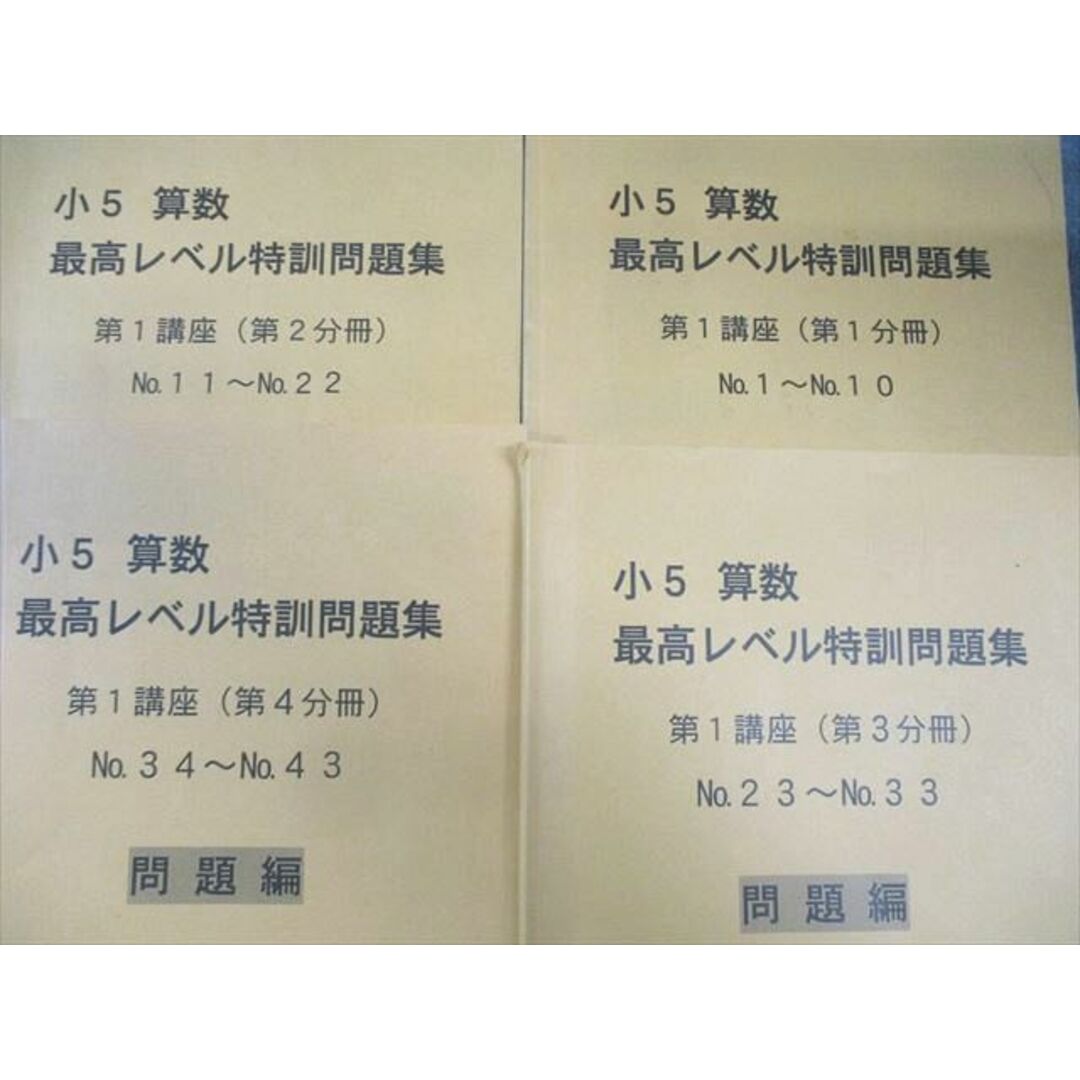 小５ 算数
最高レベル特訓問題集
第１講座（第２分冊）
№.１１～№.２２
小５ 算数
最高レベル特訓問題集
第１講座（第１分冊）
№.１～№.１０
小５ 算数
最高レベル特訓問題集
第１講座（第４分冊）
№.３４～№.４３
問題編
小５ 算数
最高レベル特訓問題集
第１講座（第３分冊）
№.２３～№.３３
問題編